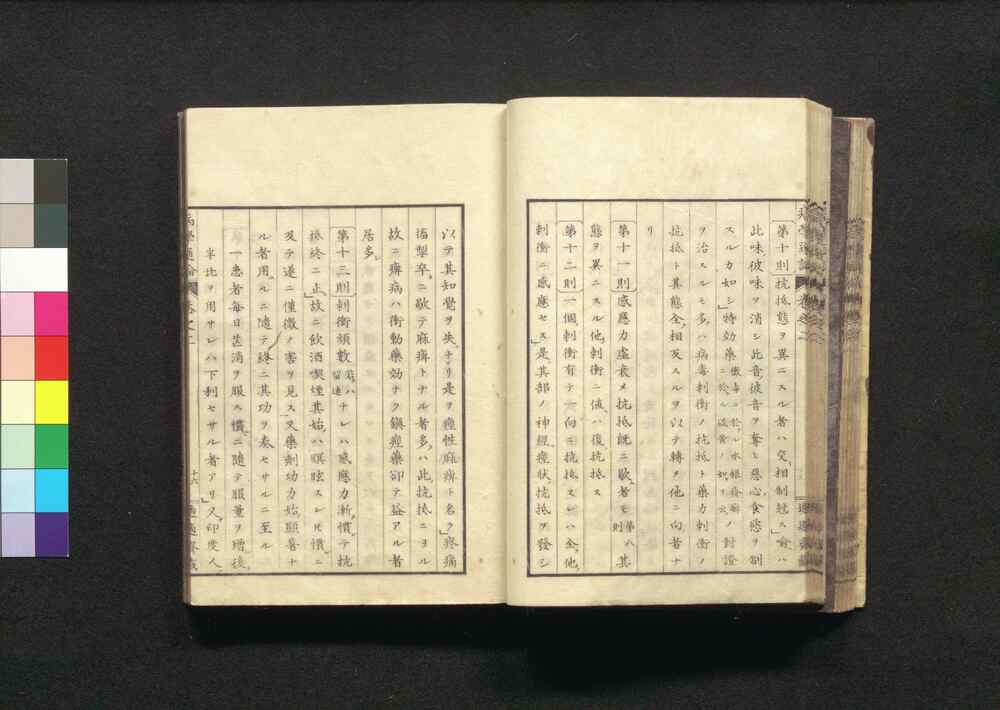 第十則 抗抵態ヲ異ニスル者ハ交相制尅ス喩ハ
此味彼味ヲ消シ此音彼音ヲ奪ヒ惡心食慾ヲ制
スルカ如シ特効藥黴毒ニ於ル水銀疥癬ニ於ル硫黄ノ類ヲ云ノ對證
ヲ治スルモ多ハ病毒刺衝ノ抗抵ト藥力刺衝ノ
抗抵ト其態全相反スルヲ以テ轉テ他ニ向者ナ
リ
第十一則 感應力虚衰メ抗抵既ニ歇者モ第八則其
態ヲ異ニスル他刺衝ニ値ハ復抗抵ス
第十二則 一個刺衝有テ一向ニ抗抵スレハ全他
刺衝ニ感應セス是其部ノ神經痙狀抗抵ヲ發シ
以テ其知覺ヲ失ナリ是ヲ痙性麻痺ト名ク疼痛
搐掣卒ニ歇テ麻痺トナル者多ハ此抗抵ニヨル
故ニ痺病ハ衝動藥効ナク鎭痙藥卻テ益アル者
居多
第十三則 刺衝頻數ナレハ感應力漸慣テ抗
抵終ニ止故ニ飲酒喫煙其始ハ瞑眩スレ𪜈慣ニ
及テ遂ニ僅微ノ害ヲ見ス又藥劑功力始顯著ナ
ル者用ルニ隨テ終ニ其功ヲ奏セサルニ至ル
一患者毎日芒消ヲ服ス慣ニ隨テ服量ヲ増後
半比ヲ用サレハ下利セサル者アリ又印度人
病學通論 卷之二
十六